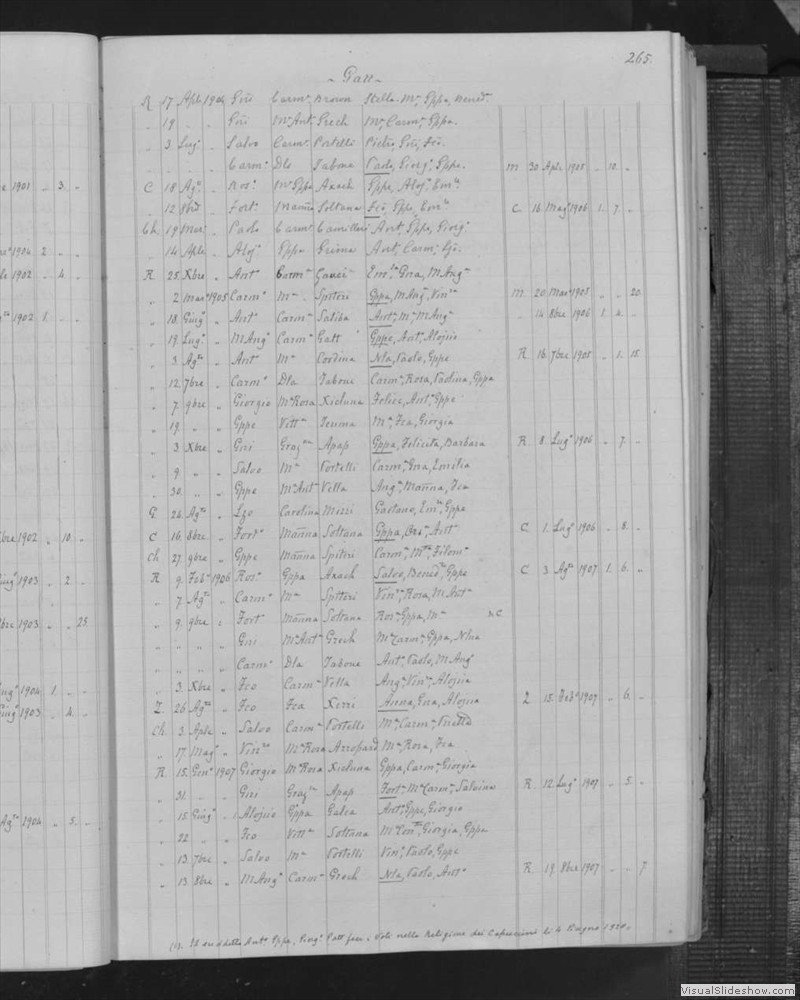 265.
- Gatt -
R 17 Aple 1904 Giri Carmᵃ Brown Stella Mᵃ, Gppa, Benedᵗ
„ 19 „ „ Giri Mᵃ Antᵃ Grech Mᵃ, Carmᵃ, Gppa.
„ 3 Lugᵒ „ Salvo Carmᵃ Portelli Pietro, Giri, Fco.
„ „ „ „ Carmᵒ Dla Tabone Carlo, Giorgᵒ, Gppe. M 30 Aple 1905 „ 10. „
C 18 Agᵗᵒ „ Rosᵒ Mᵃ Gppa Axach Gppe, Alojᵒ, Emˡᵉ
„ 12 9bre „ Fortᵒ Mannᵃ Soltana Fco, Gppe, Emˡᵉ C 16 Magᵒ 1906 1. 7. „
Ch. 19 Marᵒ „ Paolo Carmᵃ Camilleri Antᵒ, Gppe, Giorgᵒ
„ 14 Aple „ Alojᵒ Gppa Grima Antᵒ, Carmᵒ
R 25 Xbre „ Antᵒ Carmᵃ Gauci Emˡᵃ, Gna, M Angᵃ
„ 2 Marᵒ 1905 Carmᵒ Mᵃ Spiteri Gppa, M Angᵃ, Vinᶻᵃ M 20 Marᵒ 1905 „ „ 20
„ 18. Giugᵒ „ Antᵒ Carmᵃ Saliba Antᵃ, Mᵃ, M Angᵃ „ 14 8bre 1906 1. 4. „
„ 19. Lugᵒ „ M Angᵒ Carmᵃ Gatt Gppe, Antᵒ, Alojiio
„ 3 Agᵗᵒ „ Antᵒ Mᵃ Cordina Nla, Paolo, Gppe R 16. 7bre 1905 „ 1. 15
„ 12 7bre „ Carmᵒ Dla Tabone Carmᵃ, Rosa, Paolina, Gppa
„ 7. 9bre „ Giorgio Mᵃ Rosa Xicluna Felice, Antᵒ, Gppe
„ 19. „ „ Gppe Vittᵃ Teuma Mᵃ, Fca, Giorgia
„ 3 Xbre „ Giri Grazᵃ Apap Gppa, Felicita, Barbara R 8. Lugᵒ 1906 „ 7. „
„ 9. „ „ Salvo Mᵃ Portelli Carmᵃ, Gna, Emilia
„ 30. „ „ Gppe Mᵃ Antᵃ Vella Angᵃ, Mannᵃ, Fca
G. 26. Agᵗᵒ „ Lzo Carolina Mizzi Gaetano, Emˡᵉ, Gppe
C 16 8bre „ Fortᵒ Mannᵃ Soltana Gppa, Antᵃ C 1. Lugᵒ 1906 „ 8. „
Ch 27. 9bre „ Gppe Mannᵃ Spiteri Carmᵃ, Mᵃ, Filomᵃ
R 9. Febᵒ 1906 Rosᵒ Gppa Axach Salvo, Benedᵗᵒ, Gppe C 3 Agᵗᵒ 1907 1. 6. „
„ 7. Agᵗᵒ „ Carmᵒ Mᵃ Spiteri Vinᶻᵃ, Rosa, M Antᵃ
„ 9. 9bre „ Fortᵒ Mannᵃ Soltana Rosᵃ, Gppa, Mᵃ
„ „ „ „ Giri Mᵃ Antᵃ Grech Mᵃ Carmᵃ, Gppa, Nlna
„ „ „ „ Carmᵒ Dla Tabone Antᵒ, Paolo, M Angᵒ
„ 3. Xbre „ Fco Carmᵃ Vella Angᵃ, Vinᶻᵃ, Alojiia
Z. 26. Agᵗᵒ „ Fco Fca Xerri Anna, Gna, Alojiia Z 15. Febᵒ 1907 „ 6. „
Ch. 3. Aple „ Salvo Carmᵃ Portelli Mᵃ, Carmᵃ
„ 17. Magᵒ „ Vinᶻᵒ Mᵃ Rosa Azzopard Mᵃ, Rosa, Fca
R 15. Genᵒ 1907 Giorgio Mᵃ Rosa Xicluna Gppa, Carmᵃ, Giorgia
„ 31. „ „ Giri Grazᵃ Apap Fortᵃ, Mᵃ Carmᵃ, Salvina R. 12. Lugᵒ 1907 „ 5. „
„ 15 Giugᵒ „ Alojiio Gppa Galea Antᵒ, Gppe, Giorgio
„ 22 „ „ Fco Vittᵃ Soltana M Conᶜᵃ, Giorgia, Gppa
„ 13. 7bre „ Salvo Mᵃ Portelli Vinᵒ, Paolo, Gppe
„ 13. 8bre „ M Angᵒ Carmᵃ Grech Nla, Paolo, Antᵒ R. 19. 8bre 1907 „ „ 7
Il suddetto Antᵒ Gppe, Giugᵒ Gatt fece i Voti nella Religione dei Capuccini li 4 Giugno 1920.
e 1901 „ 3. „
arᵒ 1904 2 „
le 1902 „ 4. „
gᵗᵒ 1902 1. „
bre 1902 „ 10. „
iugᵒ 1903 „ 2 „
bre 1903 „ „ 25.
ugᵒ 1904 1. „ „
iugᵒ 1903 „ 4. „
Agᵗᵒ 1904 „ 5. „
VisualSlideshow.com